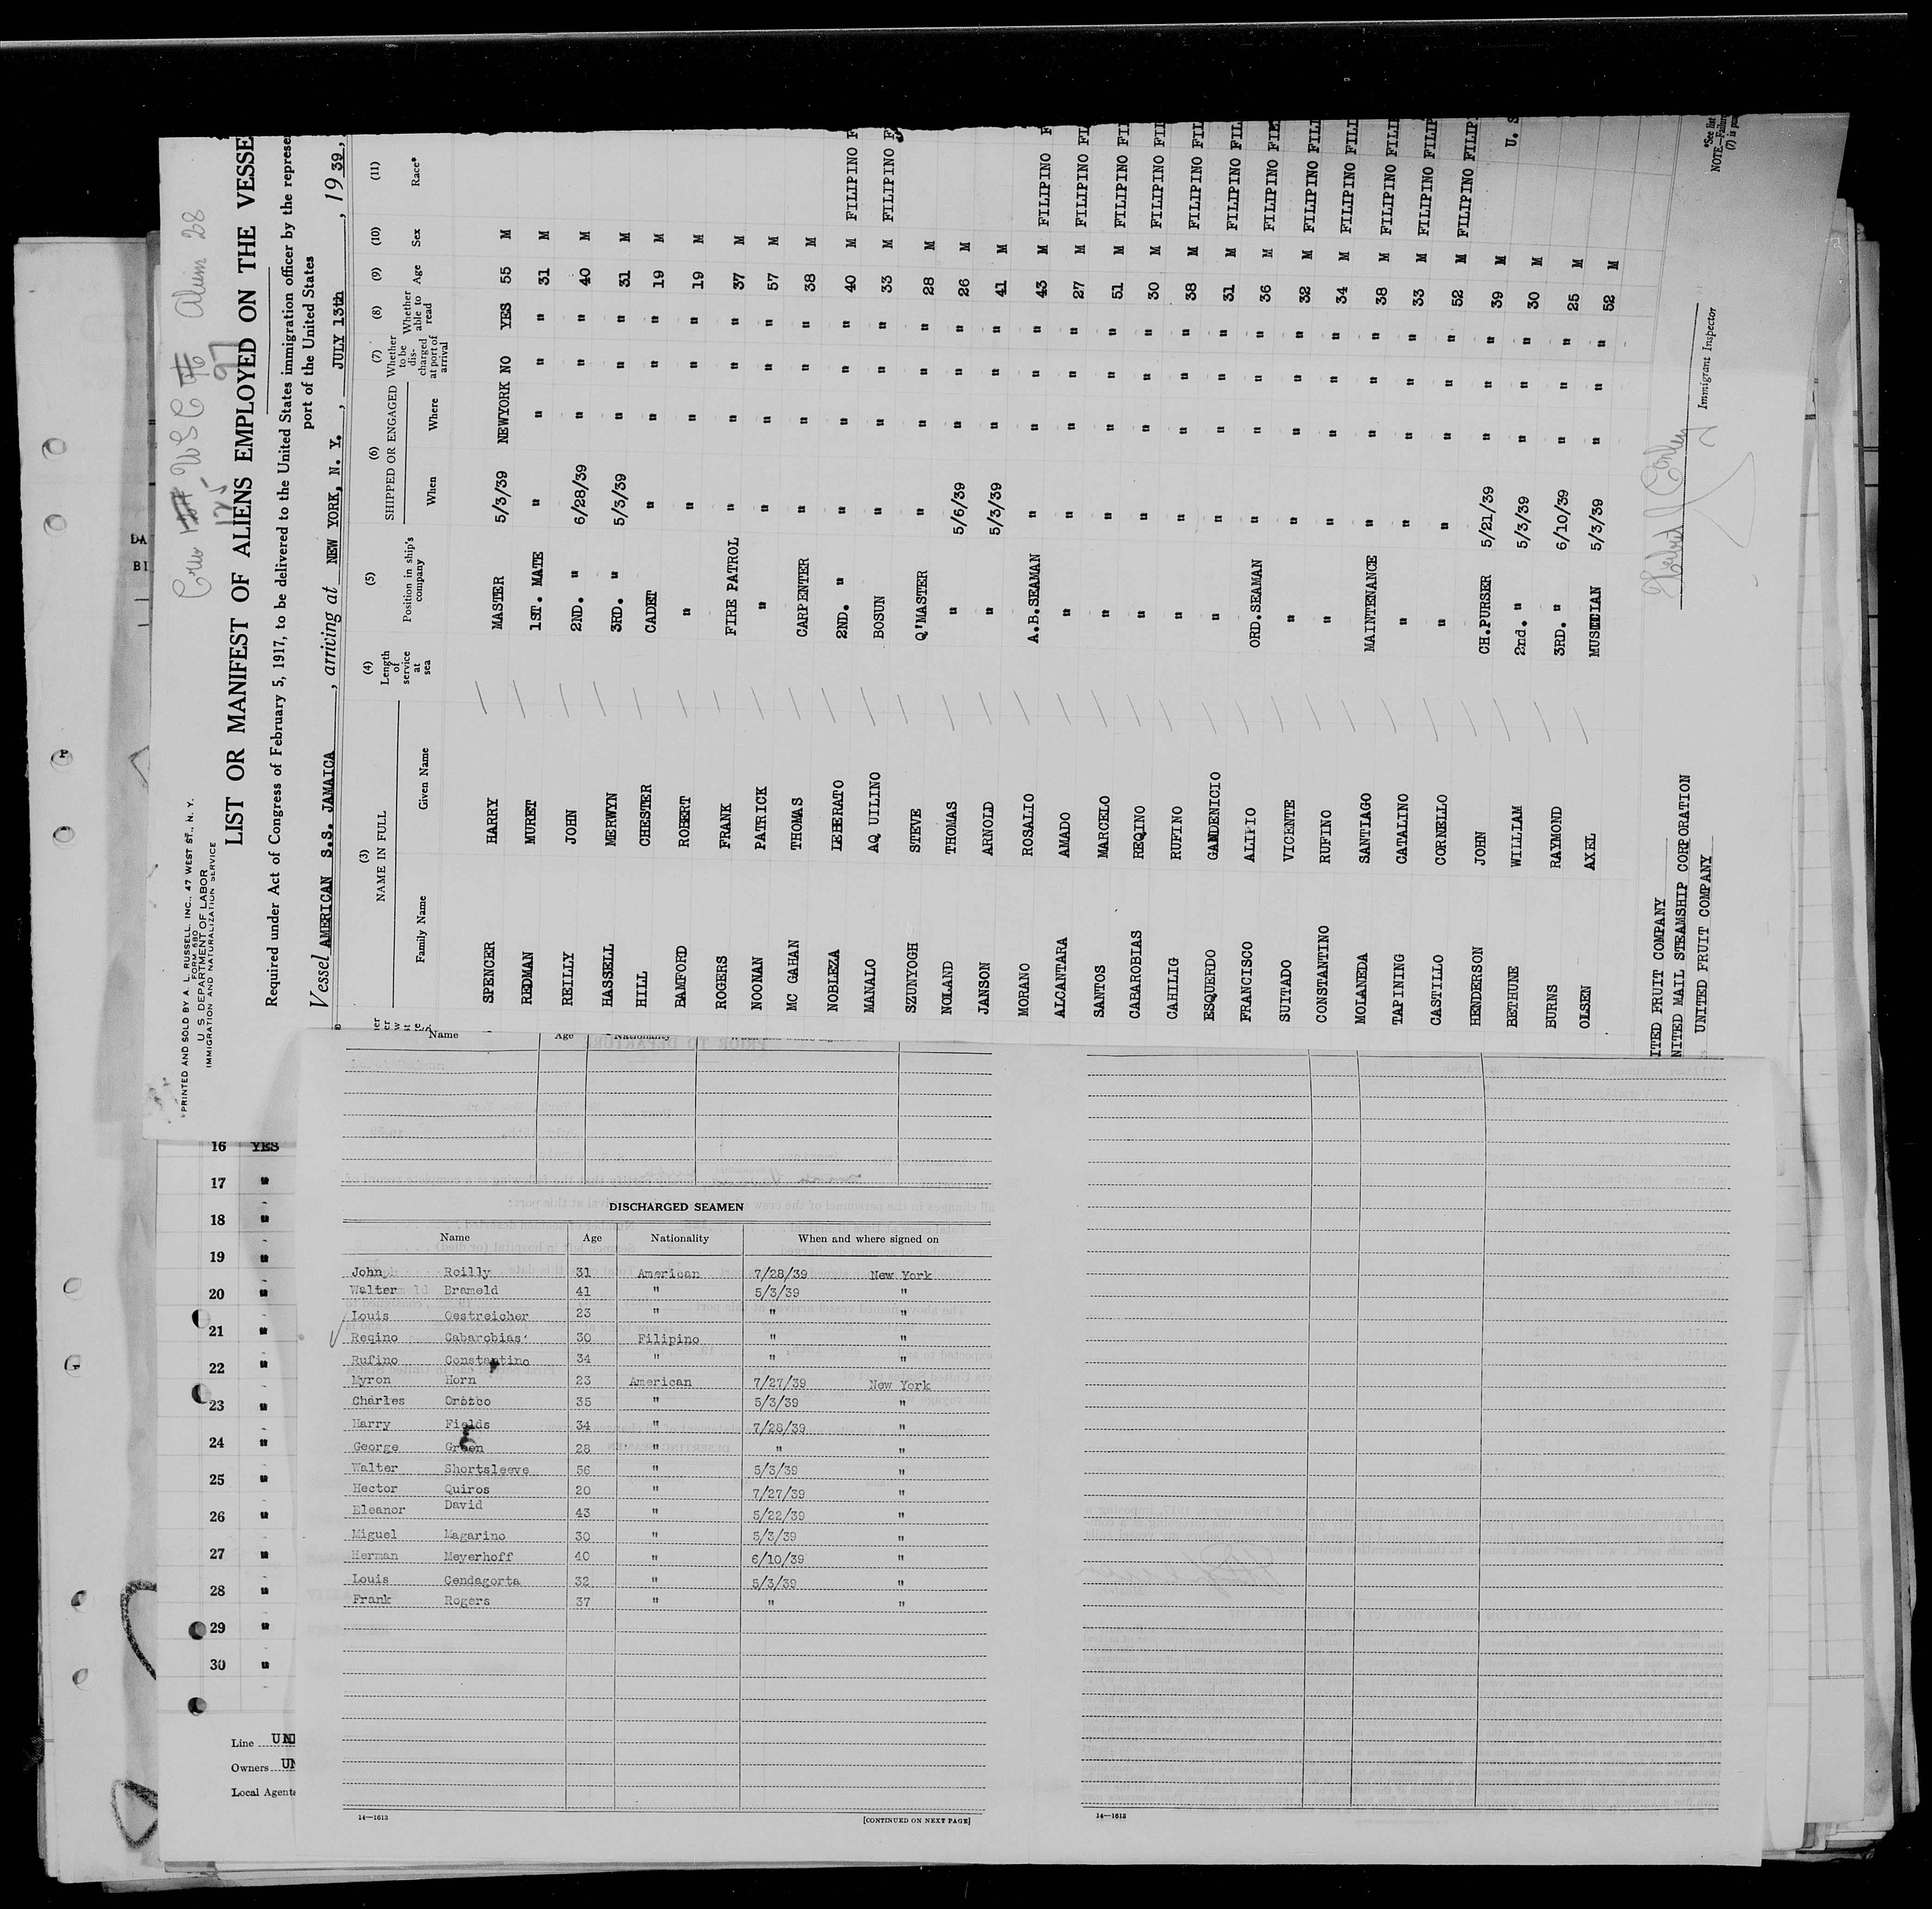 PRINTED AND SOLD BY A. L. RUSSELL, INC., 47 WEST ST., N. Y.
FORM 680
U. S. DEPARTMENT OF LABOR
IMMIGRATION AND NATURALIZATION SERVICE
LIST OR MANIFEST OF ALIENS EMPLOYED ON THE VESSE
Required under Act of Congress of February 5, 1917, to be delivered to the United States immigration officer by the represe
port of the United States
Vessel AMERICAN S.S. JAMAICA , arriving at NEW YORK, N. Y. , JULY 13th , 19 39,
(3) (4) (5) (6) (7) (8) (9) (10) (11)
NAME IN FULL Length of service at sea Position in ship's company SHIPPED OR ENGAGED Whether to be discharged at port of arrival Whether able to read Age Sex Race*
Family Name Given Name When Where
SPENCER HARRY MASTER 5/3/39 NEWYORK NO YES 55 M
REDMAN MURET 1ST. MATE " " " " 31 M
REILLY JOHN 2ND. " 6/28/39 " " " 40 M
HASSELL MERWYN 3RD. " 5/3/39 " " " 31 M
HILL CHESTER CADET " " " " 19 M
BAMFORD ROBERT " " " " " 19 M
ROGERS FRANK FIRE PATROL " " " " 37 M
NOONAN PATRICK " " " " " 57 M
MC GAHAN THOMAS CARPENTER " " " " 38 M
NOBLEZA LEBERATO 2ND. " " " " " 40 M FILIPINO F
MANALO AQ UILINO BOSUN " " " " 33 M FILIPINO F
SZUNYOGH STEVE Q'MASTER " " " " 28 M
NOLAND THOMAS " 5/6/39 " " " 26 M
JANSON ARNOLD " 5/3/39 " " " 41 M
MORANO ROSALIO A.B.SEAMAN " " " " 43 M FILIPINO F
ALCANTARA AMADO " " " " " 27 M FILIPINO FI
SANTOS MARCELO " " " " " 51 M FILIPINO FII
CABAROBIAS REQINO " " " " " 30 M FILIPINO FIL
CAHILIG RUFINO " " " " " 38 M FILIPINO FIL
ESQUERDO GANDENICIO " " " " " 31 M FILIPINO FIL
FRANCISCO ALIPIO ORD.SEAMAN " " " " 36 M FILIPINO FIL
SUITADO VICENTE " " " " " 32 M FILIPINO FILI
CONSTANTINO RUFINO " " " " " 34 M FILIPINO FILI
MOLANEDA SANTIAGO MAINTENANCE " " " " 38 M FILIPINO FILI
TAPINING CATALINO " " " " " 33 M FILIPINO FILIP
CASTILLO CORNELLO " " " " " 52 M FILIPINO FILIP
HENDERSON JOHN CH.PURSER 5/21/39 " " " 39 M
BETHUNE WILLIAM 2nd. " 5/3/39 " " " 30 M U. S
BURNS RAYMOND 3RD. " 6/10/39 " " " 25 M
OLSEN AXEL MUSICIAN 5/3/39 " " " 52 M
ITED FRUIT COMPANY
NITED MAIL STEAMSHIP CORPORATION
UNITED FRUIT COMPANY
Immigrant Inspector
*See list
NOTE—Failure
(7) is pu
DA
BI
16 YES
17 "
18 "
19 "
20 "
21 "
22 "
23 "
24 "
25 "
26 "
27 "
28 "
29 "
30 "
Line UNI
Owners UN
Local Agents
Name Age Nationality
DISCHARGED SEAMEN
Name Age Nationality When and where signed on
John Reilly 31 American 7/28/39 New York
Walter Brameld 41 " 5/3/39 "
Louis Oestreicher 23 " " "
Reqino Cabarobias 30 Filipino " "
Rufino Constantino 34 " " "
Myron Horn 23 American 7/27/39 New York
Charles Orozbo 35 " 5/3/39 "
Harry Fields 34 " 7/28/39 "
George Green 28 " " "
Walter Shortsleeve 56 " 5/3/39 "
Hector Quiros 20 " 7/27/39 "
Eleanor David 43 " 5/22/39 "
Miguel Magarino 30 " 5/3/39 "
Herman Meyerhoff 40 " 6/10/39 "
Louis Cendagorta 32 " 5/3/39 "
Frank Rogers 37 " " "
14—1613 [CONTINUED ON NEXT PAGE]
14—1613